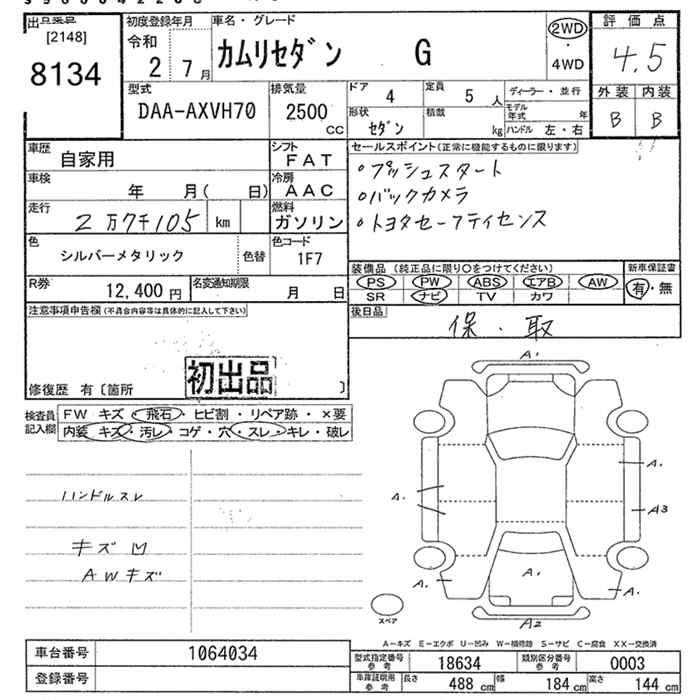 出品番号 初度登録年月 車名・グレード 評価点
[2148] 令和 カムリセダン G 2WD ・ 4WD 4.5
8134 2 7月
型式 排気量 ドア 4 定員 5人 ディーラー・並行 外装 内装
DAA-AXVH70 2500cc 形状 セダン 積載 kg モデル年式 年 B B
ハンドル 左・右
車歴 自家用 シフト FAT セールスポイント(正常に機能するものに限ります)
車検 年 月( 日) 冷房 AAC ・プッシュスタート
走行 2万7千105 km 燃料 ガソリン ・バックカメラ
・トヨタセーフティセンス
色 シルバーメタリック 色替 色コード 1F7
R券 12,400円 名変通知期限 月 日
装備品(純正品に限り○をつけてください) 新車保証書
PS PW ABS エアB AW 有・無
SR ナビ TV カワ
注意事項申告欄(不具合内容等は具体的に記入して下さい) 後日品
保・取
初出品
修復歴 有〔箇所 〕
検査員記入欄 FW キズ・飛石・ヒビ割・リペア跡・×要
内装 キズ・汚レ・コゲ・穴・スレ・キレ・破レ
ハンドルスレ
キズ凹
AWキズ
A1
A.
A.
A3
A.
A.
A.
A2
スペア
A-キズ E-エクボ U-凹み W-補修跡 S-サビ C-腐食 XX-交換済
車台番号 1064034 型式指定番号参考 18634 類別区分番号参考 0003
登録番号 車庫証明用参考 長さ 488cm 幅 184cm 高さ 144cm